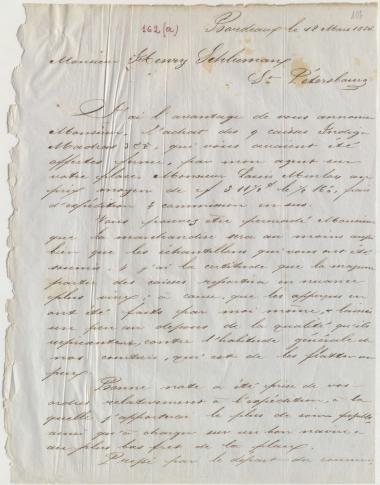 162 (a)
Bordeaux le 18 Mars
Monsieur Henry Schliemann
St Pétersbourg
J'ai l'avantage de vous annoncer
Monsieur, l'achat des 9 caisses Indigo
Madras, qui vous avaient été
offertes ferme, par mon agent sur
votre place Monsieur Louis
prix moyen de f 3 le ½ Kº, frais
d'expédition & commission en sus.
Vous pouvez être persuadé Monsieur
que la marchandise sera au moins aussi
bien que les échantillons qui vous ont été
soumis, & j'ai la certitude que la majeure
partie des caisses en nuance
plus à cause, que les
ont été faits par moi même, & laissés
un peu au dessous de la qualité qu'ils
représentent, contre l'habitude générale de
nos courtiers, qui est de les flatter un
peu
Bonne note a été prise de vos
ordres relativement à l'expédition, à la
quelle j'apporterai le plus de soins
ainsi qu'à charger sur un bon navire &
au plus bas fret de la place.
Pressé par le départ du courrier